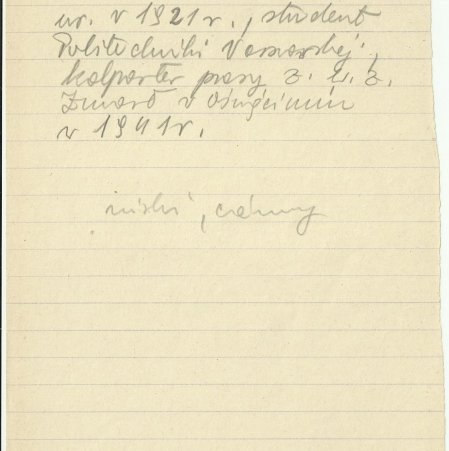 ur. w 1921 r., student
Politechniki Warszawskiej,
kolporter prasy Z. W. Z.
Zmarł w Oświęcimiu
w 1941 r.
niski, czarny